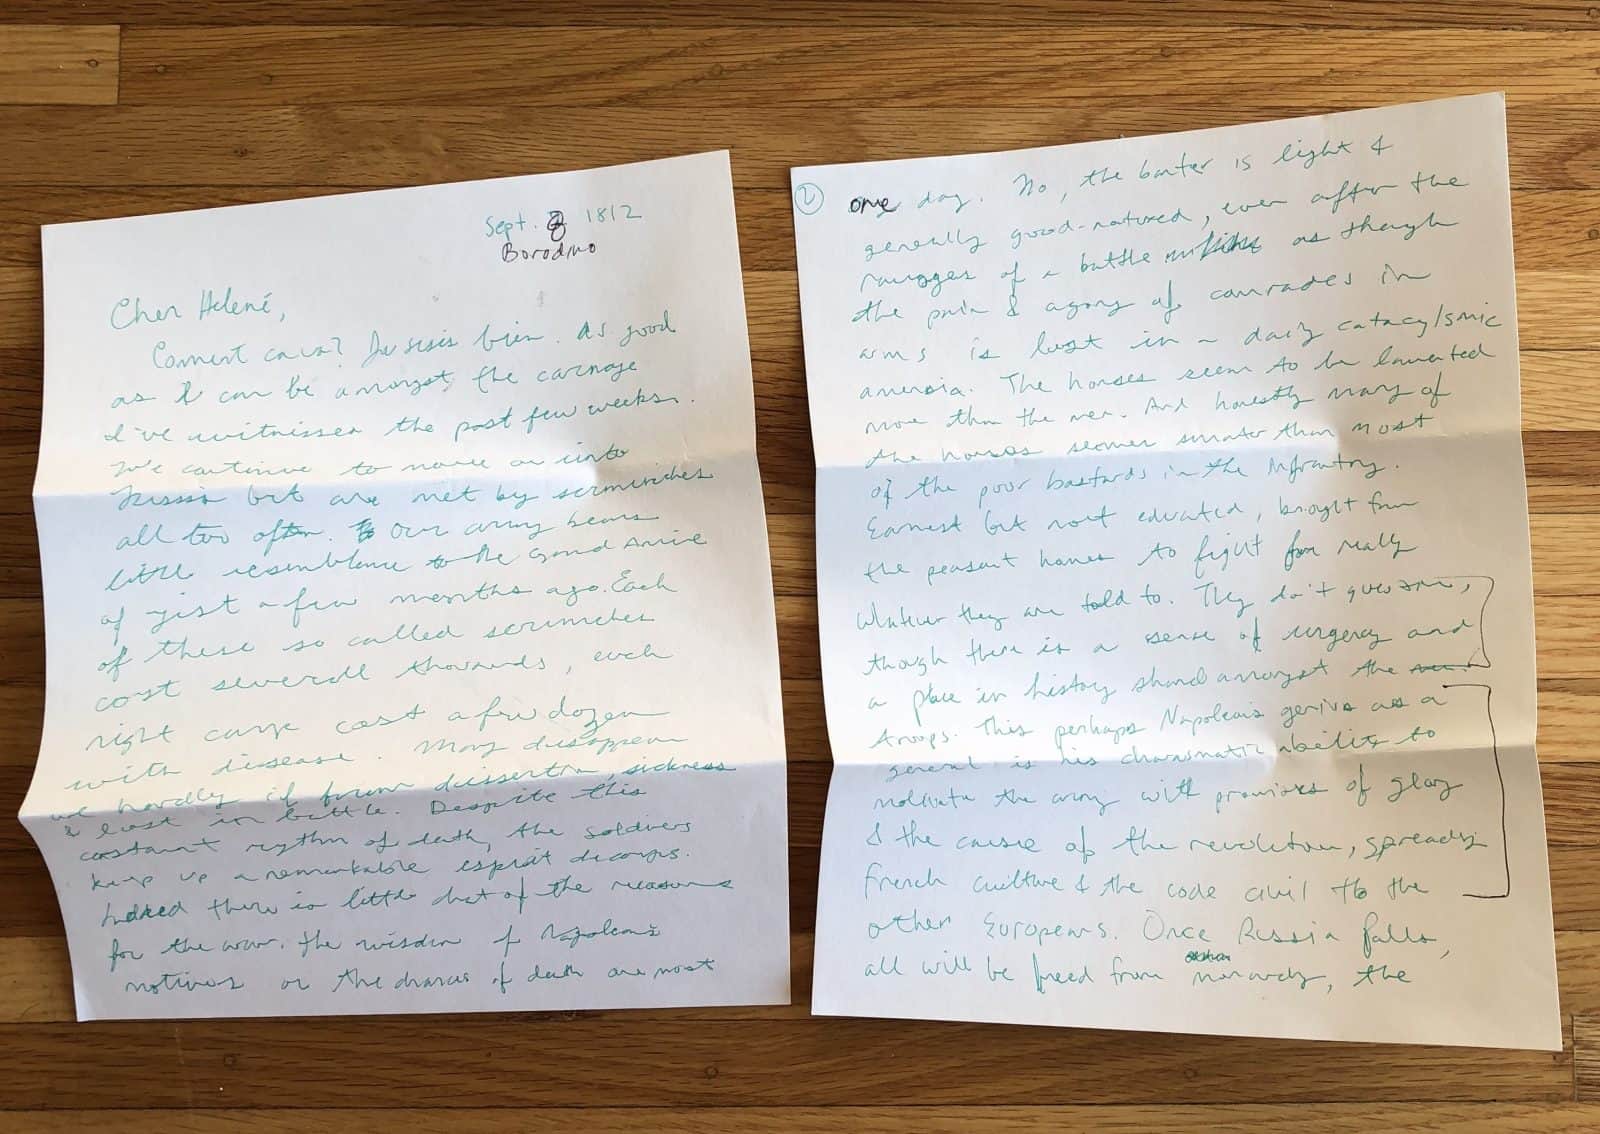 Sept. 8 1812
Borodino
Cher Helené,
Coment ca va? Je suis bien. As good
as I can be amongst, the carnage
I've witnessed the past few weeks.
We continue to move on into
Russia but are met by scrimishes
all too often. Our army bears
little resemblance to the Grand Armee
of just a few months ago. Each
of these so called scrimches
cost severall thousands, each
night camp cost a few dozen
with disease. Many disappear
we hardly if from dissertion, sickness
& lost in battle. Despite this
constant rythm of death, the soldiers
keep up a remarkable esprit decorps.
Indeed there is little chat of the reasons
for the war. The wisdom of Napoleons
motives or the chances of death are most
2 one day. No, the banter is light &
generally good-natured, even after the
ravages of a battle as though
the pain & agony of comrades in
arms is lost in a daily cataclysmic
amensia. The horses seem to be lamented
more than the men. And honestly many of
the horses seemed smarter than most
of the poor bastards in the Infrantry.
Earnest but not educated, brought from
the peasant homes to fight for really
whatever they are told to. They don't question,
though there is a sense of urgency and
a place in history shared amongst the
troops. This perhaps Napoleons genius as a
general is his charismatic ability to
motivate the army with promises of glory
& the cause of the revolution, spreading
French culture & the code civil to the
other Europeans. Once Russia falls,
all will be freed from monarchy, the